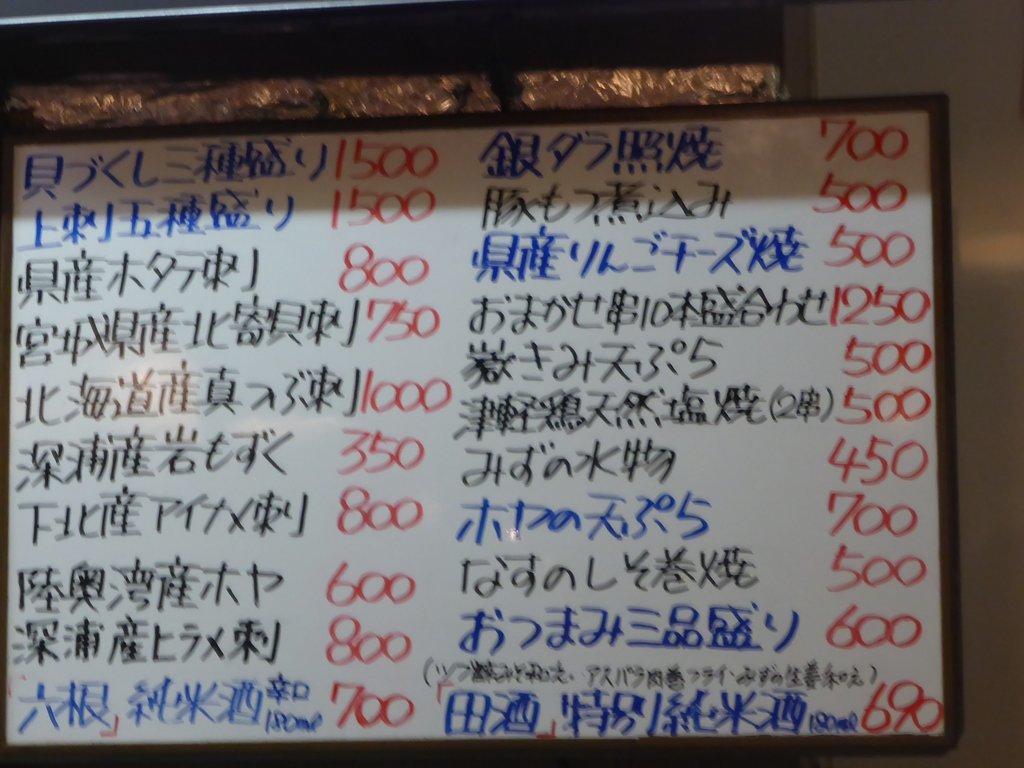 貝づくし三種盛り 1500
上刺五種盛り 1500
県産ホタテ刺 800
宮城県産北寄貝刺 750
北海道産真つぶ刺 1000
深浦産岩もずく 350
下北産アイナメ刺 800
陸奥湾産ホヤ 600
深浦産ヒラメ刺 800
「六根」純米酒 辛口 180ml 700
銀ダラ照焼 700
豚もつ煮込み 500
県産りんごチーズ焼 500
おまかせ串10本盛合わせ 1250
嶽きみ天ぷら 500
津軽鶏天然塩焼(2串) 500
みずの水物 450
ホヤの天ぷら 700
なすのしそ巻焼 500
おつまみ三品盛り 600
アスパラ肉巻フライ・みずの生姜和え)
「田酒」特別純米酒 180ml 690